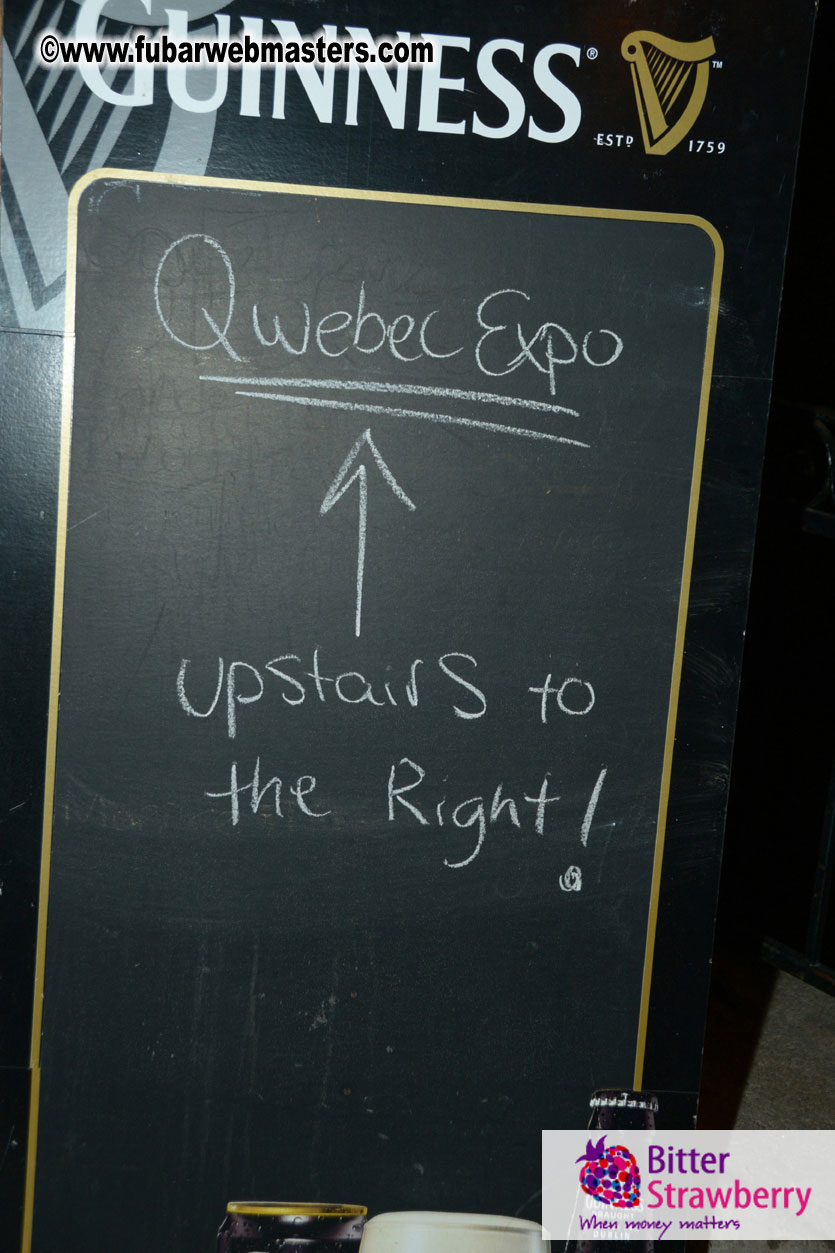 ©www.fubarwebmasters.com
GUINNESS®
™
ESTD 1759
Qwebec Expo
upstairs to
the Right!
Bitter
Strawberry
When money matters